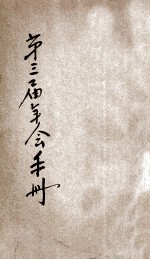 第三届年会手册